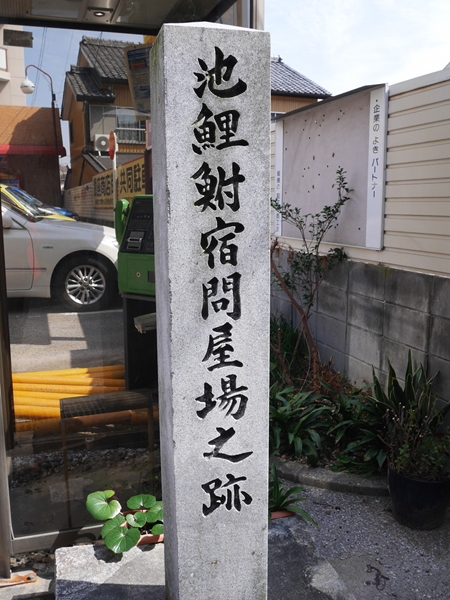 池鯉鮒宿問屋場之跡
・企業の よき パートナー
共同駐